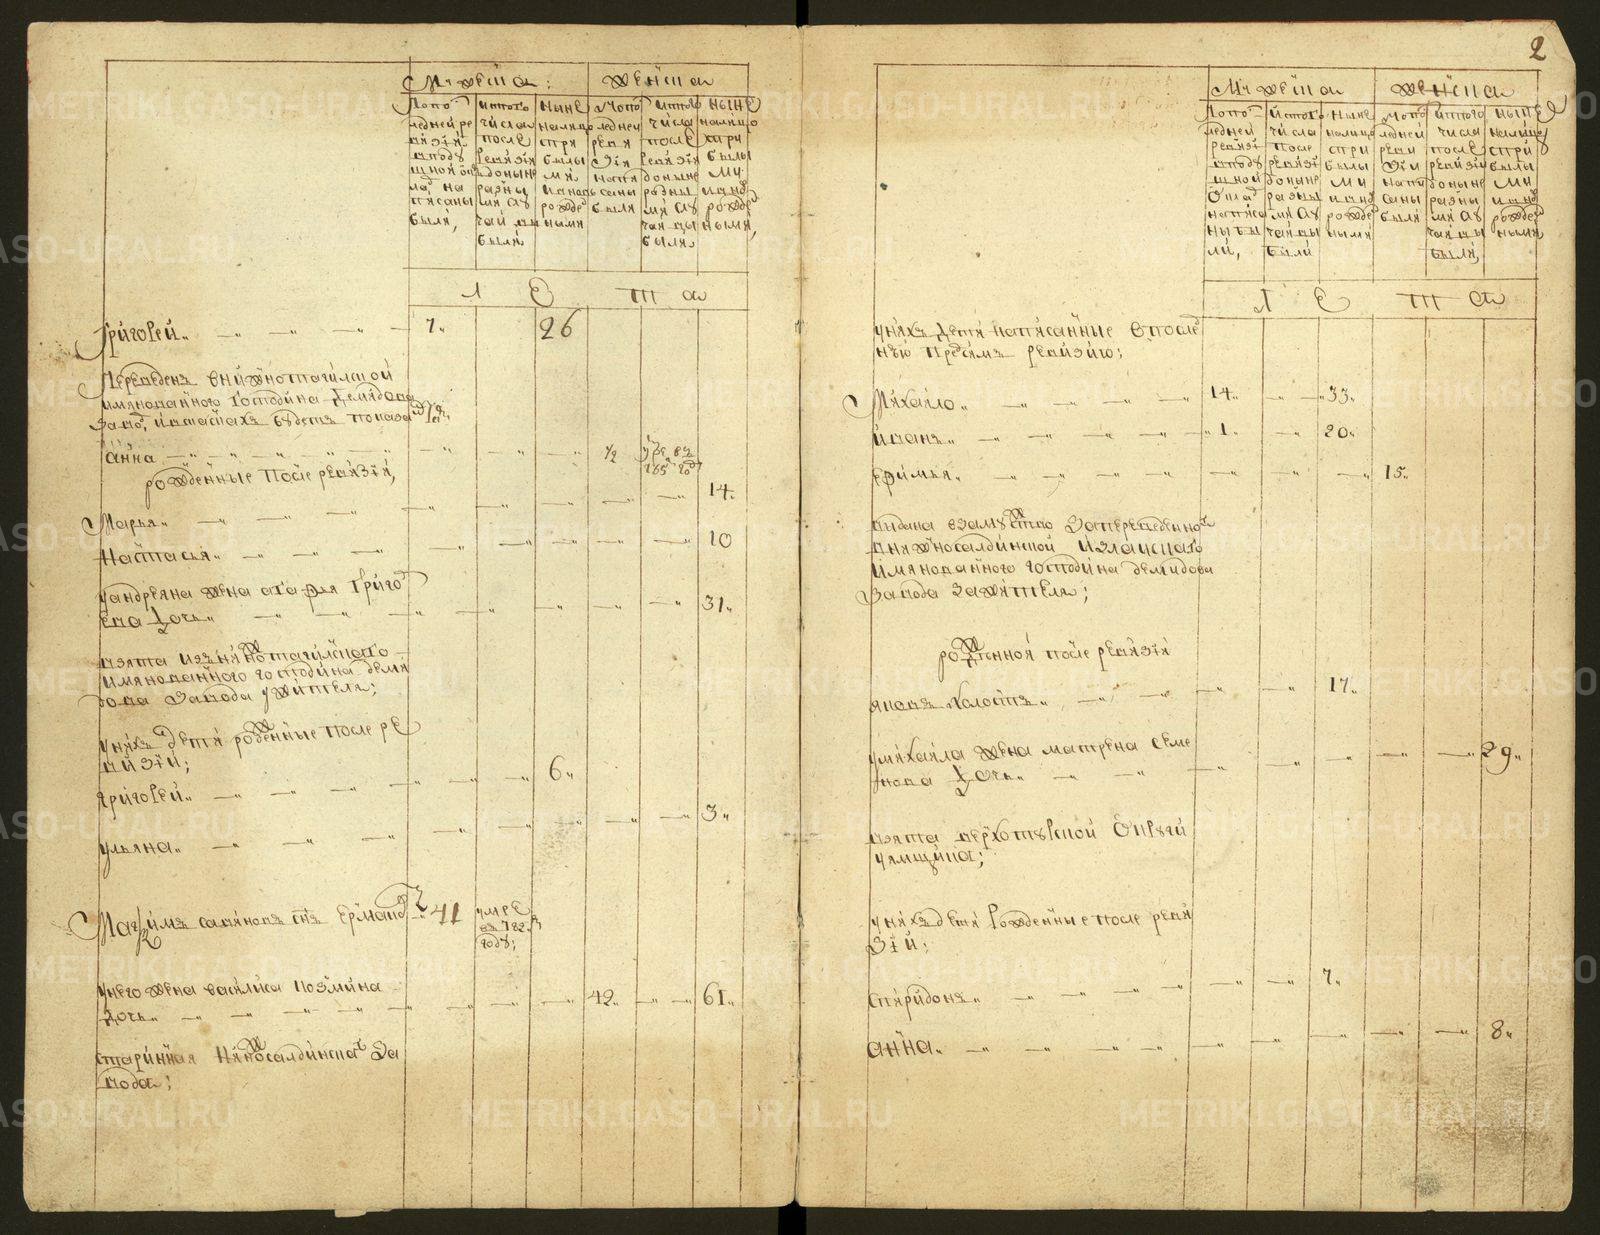 Мужеска:
женска
По по
следней ре
визiи
в поду
шной ок
лад на
писаны
были,
Ис того
числа
после
ревизiи
до ныне
разны
ми слу
чаи вы
были
Ныне
на лицо
с при
былы
ми
и ново
рожде
ными
По по
следней
реви
зiи
напи
саны
были
Ис того
числа
после
ревизiи
до ныне
разны
ми слу
чаи вы
были
Ныне
на лицо
с при
былы
ми
и ново
рожде
ными,
Л Е Т А
Григорей 7 26
Переведенъ в Нижнотагилской
имянованного господина Демидова
завод, и в таскахъ будетъ показа
Анна 1/2
рожденные после ревизiи,
Марья 14
Настасья 10
у Андреяна жена Агафья Григо
ева дочь 31
взята из Нижнотагилского
имянованного господина Деми
дова завода у жителя;
у нихъ дети рожденные после ре
визiи;
Григорей 6
Ульяна 3
Максимъ Савиновъ снъ Ермаков 41 умре
въ 782
году;
у него жена Василиса Козмина
дочь 42 61
старинная Нижносалдинскаг за
вода;
2
Мужеска
женска
По по
следней
ревизi
в поду
шной
оклад
написа
ны бы
ли,
Ис того
числа
после
ревизi
до ныне
разны
ми слу
чаи вы
были
Ныне
на лицо
с при
былы
ми
и ново
рожде
ными
По по
следней
реви
зiи
напи
саны
были
Ис того
числа
после
ревизiи
до ныне
разны
ми слу
чаи вы
были,
Ныне
на лице
с при
былы
ми
и ново
рожде
ными
Л Е Т А
у нихъ дети написанные в после
нюю пред симъ ревизию;
Михайло 14 33
Иванъ 1 20
Ефимья 15
выдана в замужство за переведенног
в Нижносалдинской из Лайскаго
имянованного господина Демидова
завода за жителя;
рожденной после ревизiи
Яковъ холостъ 17
у Михаила жена Матрена Семе
нова дочь 29
взята Верхотурской округи
у ямщика;
у нихъ дети рожденные после реви
зiи;
Спиридонъ 7
Анна 8
METRIKI.GASO-URAL.RU